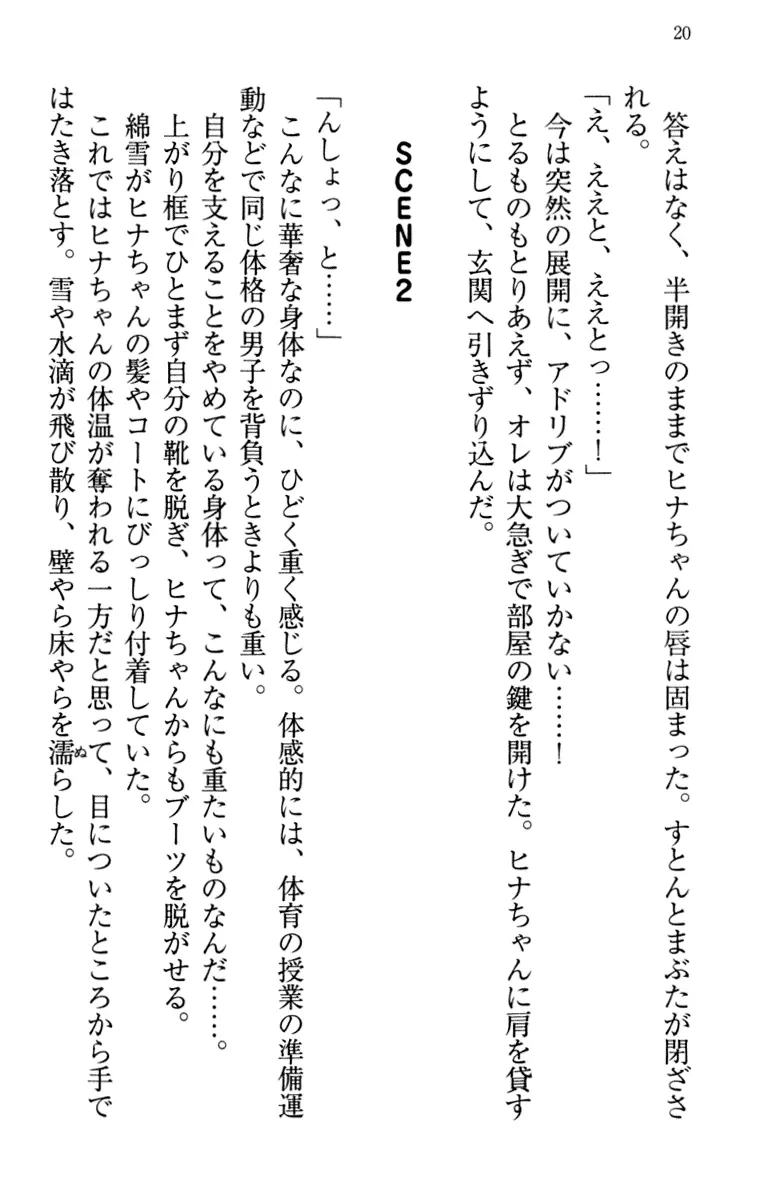 20
答えはなく、半開きのままでヒナちゃんの唇は固まった。すとんとまぶたが閉ざさ
れる。
「え、ええと、ええとっ……！」
今は突然の展開に、アドリブがついていかない……！
とるものもとりあえず、オレは大急ぎで部屋の鍵を開けた。ヒナちゃんに肩を貸す
ようにして、玄関へ引きずり込んだ。
SCENE2
「んしょっ、と……」
こんなに華奢な身体なのに、ひどく重く感じる。体感的には、体育の授業の準備運
動などで同じ体格の男子を背負うときよりも重い。
自分を支えることをやめている身体って、こんなにも重たいものなんだ……。
上がり框でひとまず自分の靴を脱ぎ、ヒナちゃんからもブーツを脱がせる。
綿雪がヒナちゃんの髪やコートにびっしり付着していた。
これではヒナちゃんの体温が奪われる一方だと思って、目についたところから手で
はたき落とす。雪や水滴が飛び散り、壁やら床やらを濡ぬらした。